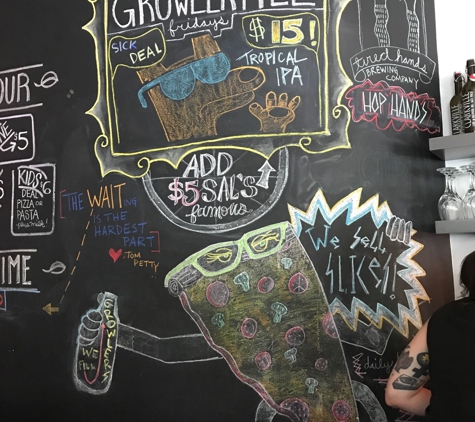 GROWLER FILL
fridays
$15!
SICK
DEAL
TROPICAL
IPA
tired hands
BREWING
COMPANY
HOP HANDS
OUR
$5
KIDS
DEAL
PIZZA OR
PASTA
ADD
$5 SAL'S
famous
[THE WAITing
IS THE
HARDEST
PART]
-TOM
PETTY
IME
We sell
SLICES!
WE
FILL
daily